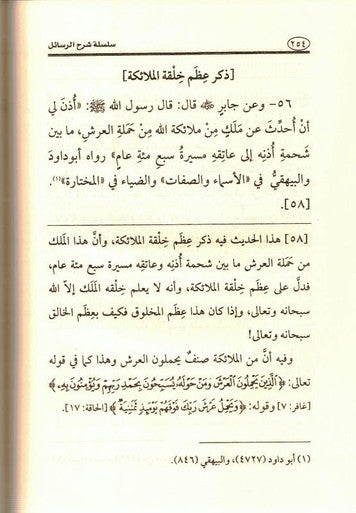 ٢٥٤ سلسلة شرح الرسائل
[ذكر عِظَم خِلْقة الملائكة]
٥٦- وعن جابرٍ ﷺ قال: قال رسول الله ﷺ: «أُذنَ لي
أنْ أُحدِّثَ عن مَلَكٍ مِنْ ملائكة الله مِنْ حَمَلةِ العرشِ، ما بين
شَحمةِ أُذنِه إلى عاتِقِه مَسيرةُ سبعِ مئةِ عامٍ» رواه أبوداود
والبيهقيُّ في «الأسماء والصفات» والضياء في «المختارة»(١).
[٥٨].
[٥٨] هذا الحديث فيه ذكر عِظَم خِلْقة الملائكة، وأنَّ هذا المَلَك
من حَمَلة العرش ما بين شحمة أُذنه وعاتقه مسيرة سبع مئة عام،
فدلَّ على عِظَم خِلْقة الملائكة، وأنه لا يعلم خِلْقه المَلَك إلاَّ الله
سبحانه وتعالى، وإذا كان هذا عِظَم المخلوق فكيف بعِظَم الخالق
سبحانه وتعالى!
وفيه أنَّ من الملائكة صنفٌ يحملون العرش وهذا كما في قوله
تعالى: ﴿الَّذِينَ يَحْمِلُونَ الْعَرْشَ وَمَنْ حَوْلَهُ يُسَبِّحُونَ بِحَمْدِ رَبِّهِمْ وَيُؤْمِنُونَ بِهِ﴾
[غافر: ٧] وقوله: ﴿وَيَحْمِلُ عَرْشَ رَبِّكَ فَوْقَهُمْ يَوْمَئِذٍ ثَمَانِيَةٌ﴾ [الحاقة: ١٧].
(١) أبو داود (٤٧٢٧)، والبيهقي (٨٤٦).